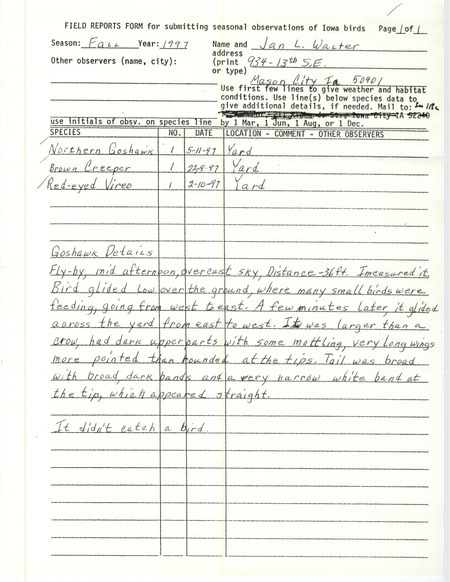 FIELD REPORTS FORM for submitting seasonal observations of Iowa birds Page 1 of 1
Season: Fall Year: 1997 Name and Jan L. Walter
address
Other observers (name, city): (print 934-13th S.E.
or type)
Mason City Ia 50401
Use first few lines to give weather and habitat
conditions. Use line(s) below species data to
give additional details, if needed. Mail to:
Iowa City IA 52240
use initials of obsv. on species line by 1 Mar, 1 Jun, 1 Aug, or 1 Dec.
SPECIES NO. DATE LOCATION - COMMENT - OTHER OBSERVERS
Northern Goshawk 1 5-11-97 Yard
Brown Creeper 1 22-9-97 Yard
Red-eyed Vireo 1 2-10-97 Yard
Goshawk Details
Fly-by, mid afternoon, overcast sky, Distance -36ft. I measured it.
Bird glided low over the ground, where many small birds were
feeding, going from west to east. A few minutes later, it glided
across the yard from east to west. It was larger than a
crow, had dark upperparts with some mottling, very long wings
more pointed than rounded at the tips. Tail was broad
with broad, dark bands and a very narrow white band at
the tip, which appeared straight.
It didn't catch a bird.